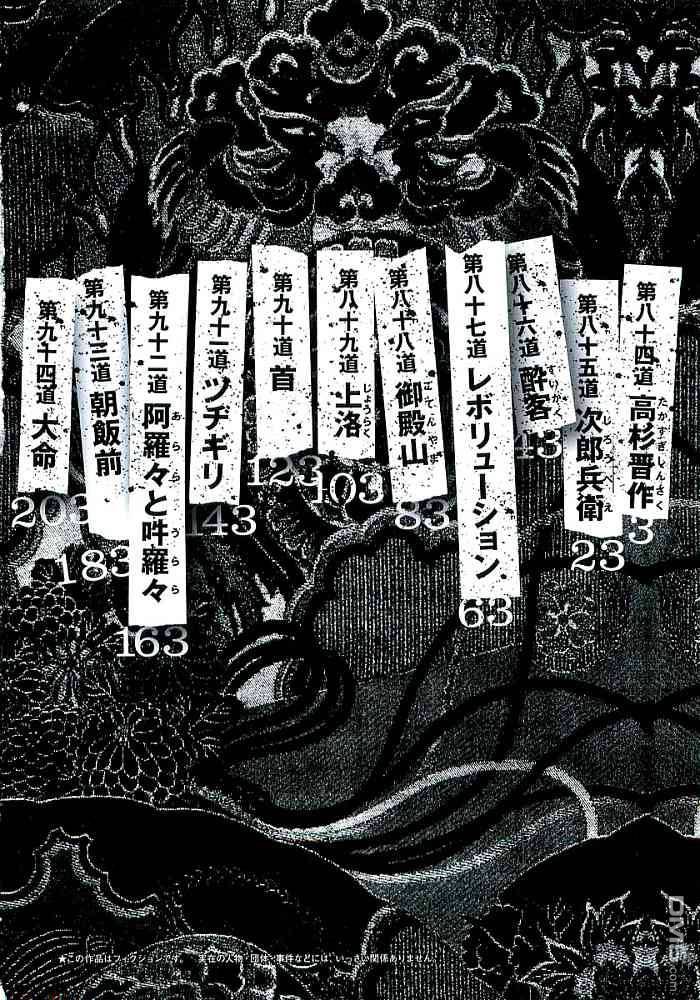 第八十四道 高杉晋作
たかすぎしんさく
3
第八十五道 次郎兵衛
じろうべえ
23
第八十六道 酔客
すいかく
43
第八十七道 レボリューション
63
第八十八道 御殿山
ごてんやま
83
第八十九道 上洛
じょうらく
103
第九十道 首
123
第九十一道 ツヂギリ
143
第九十二道 阿羅々と吽羅々
あららうらら
163
第九十三道 朝飯前
183
第九十四道 大命
203
★この作品はフィクションです。 実在の人物・団体・事件などには、いっさい関係ありません。